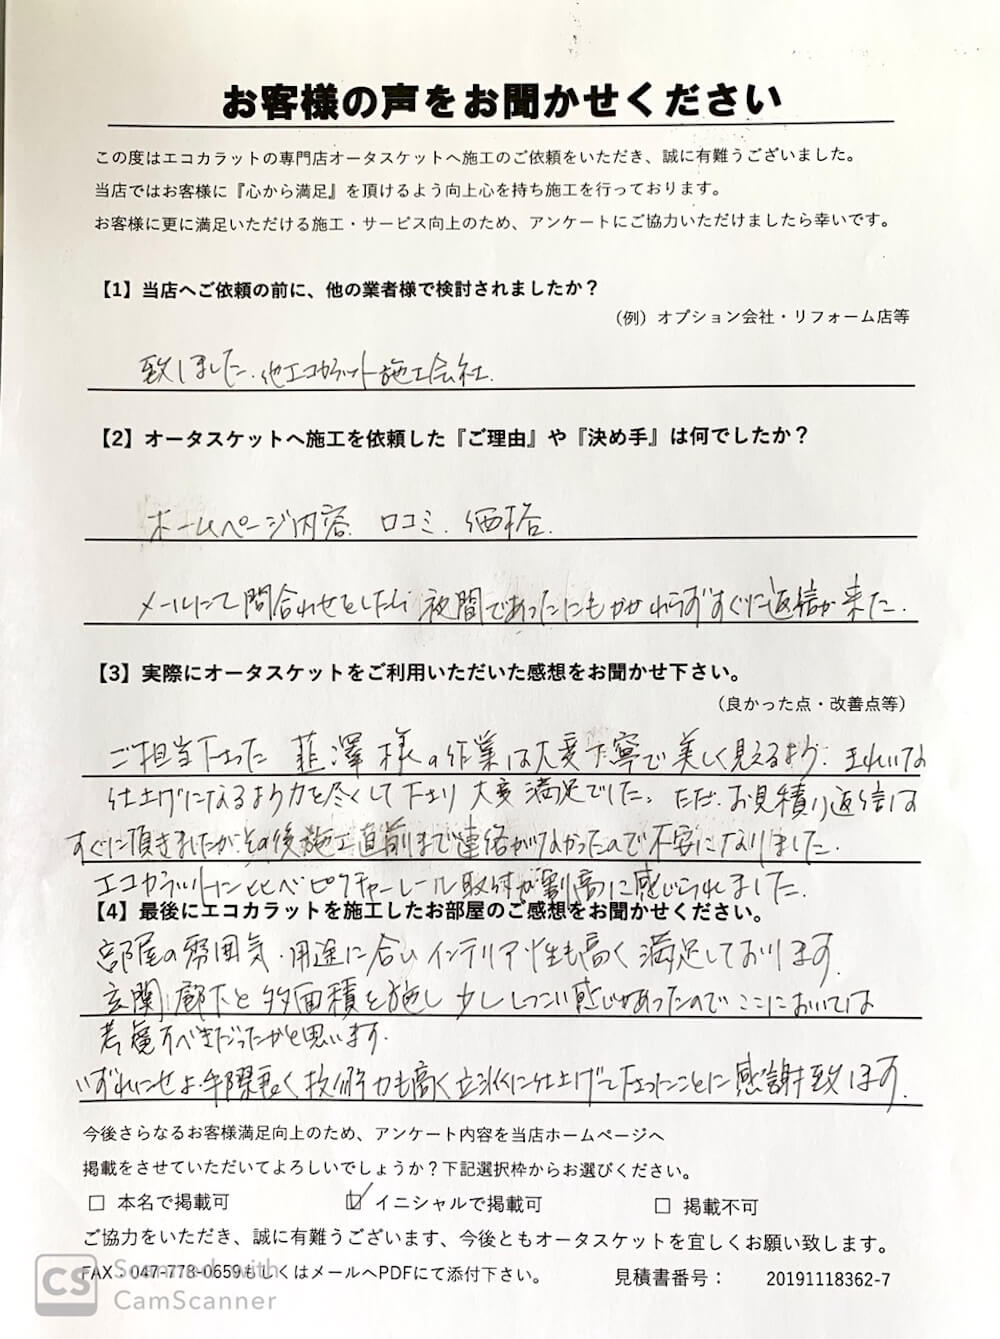 お客様の声をお聞かせください
この度はエコカラットの専門店オータスケットへ施工のご依頼をいただき、誠に有難うございました。
当店ではお客様に『心から満足』を頂けるよう向上心を持ち施工を行っております。
お客様に更に満足いただける施工・サービス向上のため、アンケートにご協力いただけましたら幸いです。
【1】当店へご依頼の前に、他の業者様で検討されましたか？
（例）オプション会社・リフォーム店等
致しました。他エコカラット施工会社.
【2】オータスケットへ施工を依頼した『ご理由』や『決め手』は何でしたか？
ホームページ内容. 口コミ. 価格.
メールにて問合わせをしたら夜間であったにもかかわらずすぐに返信が来た.
【3】実際にオータスケットをご利用いただいた感想をお聞かせ下さい。
（良かった点・改善点等）
ご担当下さった 韮澤様の作業は大変丁寧で美しく見えるよう. きれいな
仕上げになるよう力を尽くして下さり 大変満足でした。ただ. お見積り返信は
すぐに頂きましたが. その後施工直前まで連絡がなかったので不安になりました.
エコカラットに比べピクチャーレール取付が割高に感じられました.
【4】最後にエコカラットを施工したお部屋のご感想をお聞かせください。
部屋の雰囲気・用途に合いインテリア性も高く満足しております.
玄関 廊下と多面積を施し 少ししつこい感じがあったのでここにおいては
考慮すべきだったかと思います.
いずれにせよ手際良く技術力も高く立派に仕上げて下さったことに感謝致します.
今後さらなるお客様満足向上のため、アンケート内容を当店ホームページへ
掲載をさせていただいてよろしいでしょうか？下記選択枠からお選びください。
□ 本名で掲載可 ☑ イニシャルで掲載可 □ 掲載不可
ご協力をいただき、誠に有難うございます、今後ともオータスケットを宜しくお願い致します。
FAX：047-778-0659もしくはメールへPDFにて添付下さい。 見積書番号： 20191118362-7
CS Scanned with
CamScanner